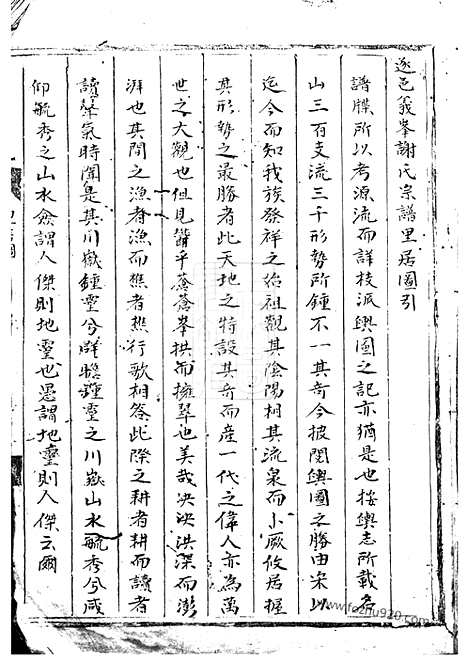 遂邑義峯謝氏宗譜里居圖引
譜牒所以考源流而詳枝派輿圖之記亦猶是也按輿志所載名
山三百支流三千形勢所鍾不一其奇今披閱輿圖之勝由宋以
迄今而知我族發祥之始祖觀其陰陽相其流泉而卜厥攸居握
其形勢之最勝者此天地之特設其奇而產一代之偉人亦為萬
世之大觀也但見鬱乎蒼蒼峯拱而擁翠也美哉泱泱洪深而澎
湃也其間之漁者漁而樵者樵行歌相答此際之耕者耕而讀者
讀聲氣時聞是其川嶽鍾靈兮群瞻鍾靈之川嶽山水毓秀兮咸
仰毓秀之山水僉謂人傑則地靈也愚謂地靈則人傑云爾
www.fozhu920.com